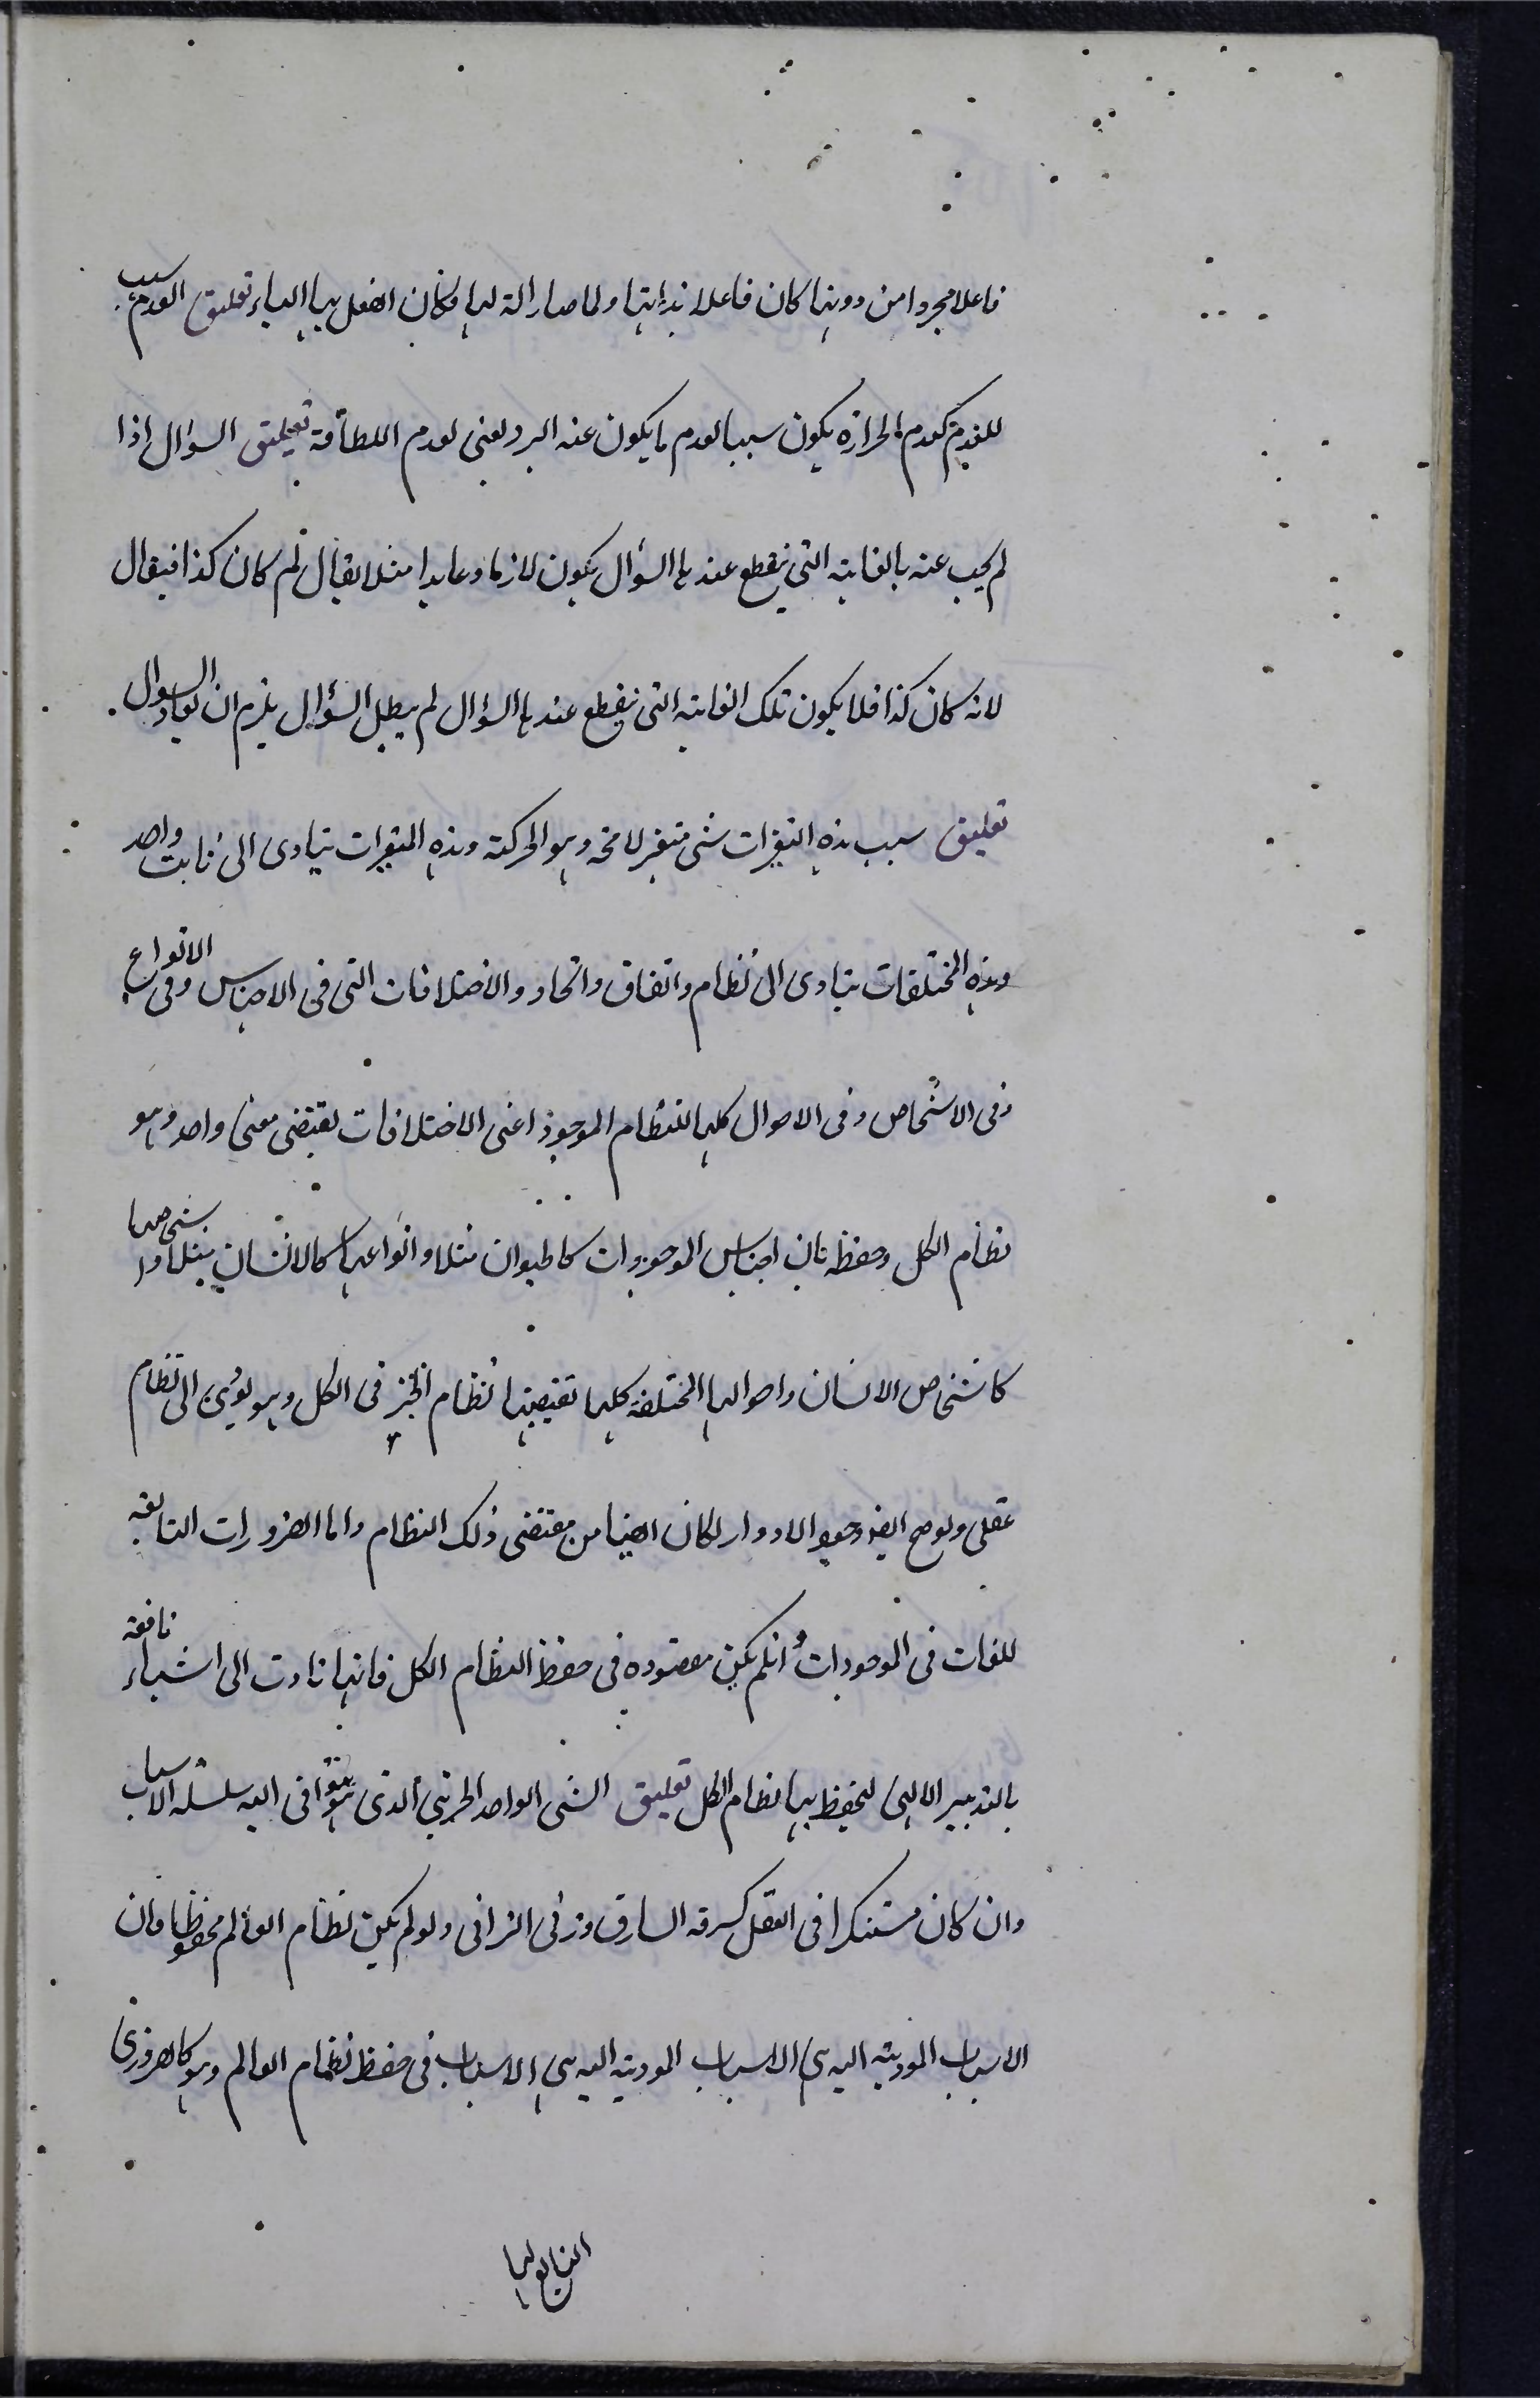 فاعلا مجردا من دونها كان فاعلا بذاتها ولما صار آلة لها فكان الفعل بها الباء تعليق العدم سبب
للعدم كعدم الحرارة يكون سببا لعدم ما يكون عنه البرد يعنى لعدم اللطافة تعليق السؤال اذا
لم يجب عنه بالغاية التى ينقطع عندها السؤال يكون لازما وعايدا مثلا يقال لم كان كذا فيقال
لانه كان كذا فلا يكون تلك الغاية التى ينقطع عندها السؤال لم يبطل السؤال يلزم ان يعاد السؤال
تعليق سبب هذه التغيرات شى متغير لا محه وهو الحركة وهذه المتغيرات يتادى الى ثابت واحد
وهذه المختلفات يتادى الى نظام واتفاق واتحاد والاختلافات التى فى الاجناس وفى الانواع
وفى الاشخاص وفى الاحوال كلها للنظام الموجود اعنى الاختلافات يقتضى معنى واحد وهو
نظام الكل وحفظه فان اجناس الموجودات كالحيوان مثلا وانواعها كالانسان مثلا واشخاصها
كاشخاص الانسان واحوالها المختلفة كلها تقتضيها نظام الخير فى الكل وهو يؤدى الى نظام
عقلى ولو صح ايضا وجود الادوار لكان ايضا من مقتضى ذلك النظام واما الضرورات التابعة
للغات فى الموجودات وانلم يكن مقصوده فى حفظ النظام الكل فانها تادت الى اشياء نافعة
بالتدبير الالهى ليحفظ بها نظام الكل تعليق الشى الواحد الجزئى الذى يتوافى اليه سلسلة الاسباب
وان كان مستنكرا فى العقل كسرقه السارق وزنى الزانى ولو لم يكن نظام العالم محفوظا فان
الاسباب المودية اليه هى الاسباب المودية اليه هى الاسباب فى حفظ نظام العالم وهو كالضرورى
التابع لها